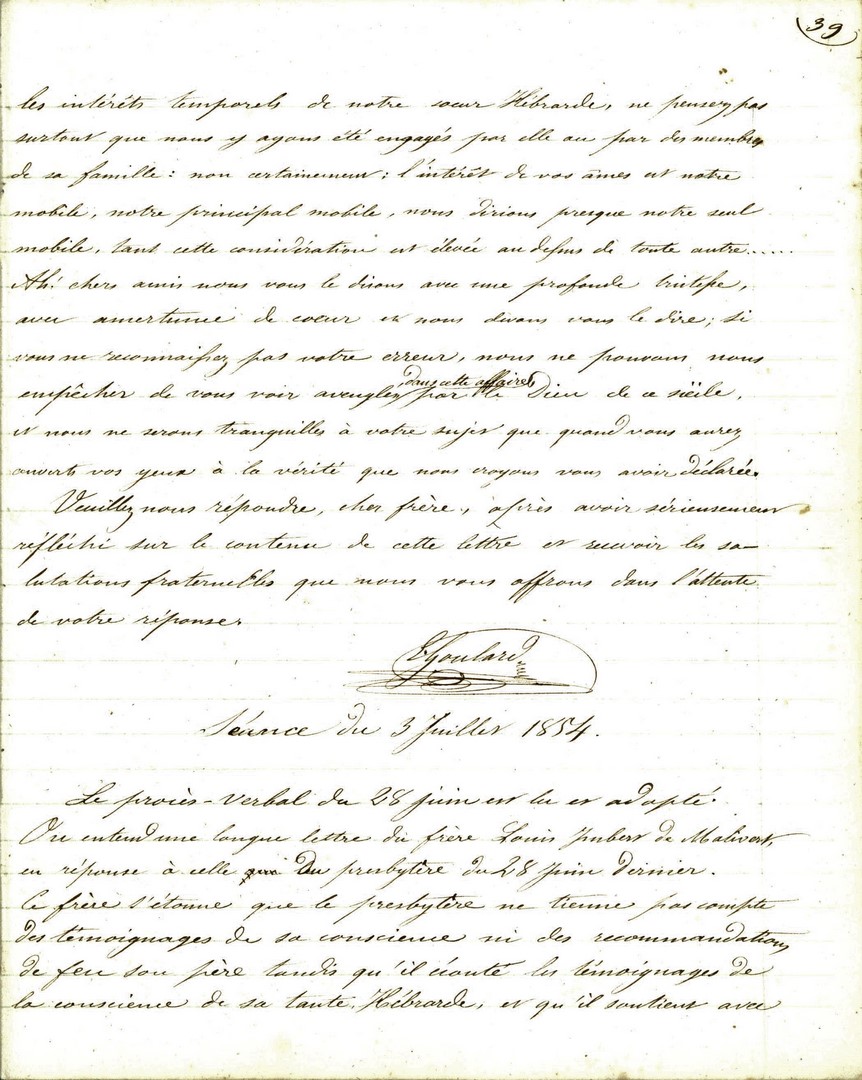 39
les intérêts temporels de notre sœur Hébrarde, ne pensez pas
surtout que nous y ayons été engagés par elle ou par des membres
de sa famille : non certainement ; l'intérêt de vos âmes est notre
mobile, notre principal mobile, nous dirions presque notre seul
mobile, tant cette considération est élevée au dessus de toute autre.....
Ah! chers amis nous vous le disons avec une profonde tristesse,
avec amertume de cœur et nous devons vous le dire ; si
vous ne reconnaissez pas votre erreur, nous ne pouvons nous
empêcher de vous voir aveugles, dans cette affaire, par le Dieu de ce siècle,
et nous ne serons tranquilles à votre sujet que quand vous aurez
ouverts vos yeux à la vérité que nous croyons vous avoir déclarée.
Veuillez nous répondre, cher frère, après avoir sérieusement
réfléchi sur le contenu de cette lettre et recevoir les sa-
lutations fraternelles que nous vous offrons dans l'attente
de votre réponse.
E Goulard
Séance du 3 Juillet 1854.
Le procès-verbal du 28 juin est lu et adopté.
On entend une longue lettre du frère Louis Jubert de Malivert,
en réponse à celle du presbytère du 28 Juin dernier.
Ce frère s'étonne que le presbytère ne tienne pas compte
des témoignages de sa conscience ni des recommandations
de feu son père tandis qu'il écoute les témoignages de
la conscience de sa tante Hébrarde, et qu'il soutient avec